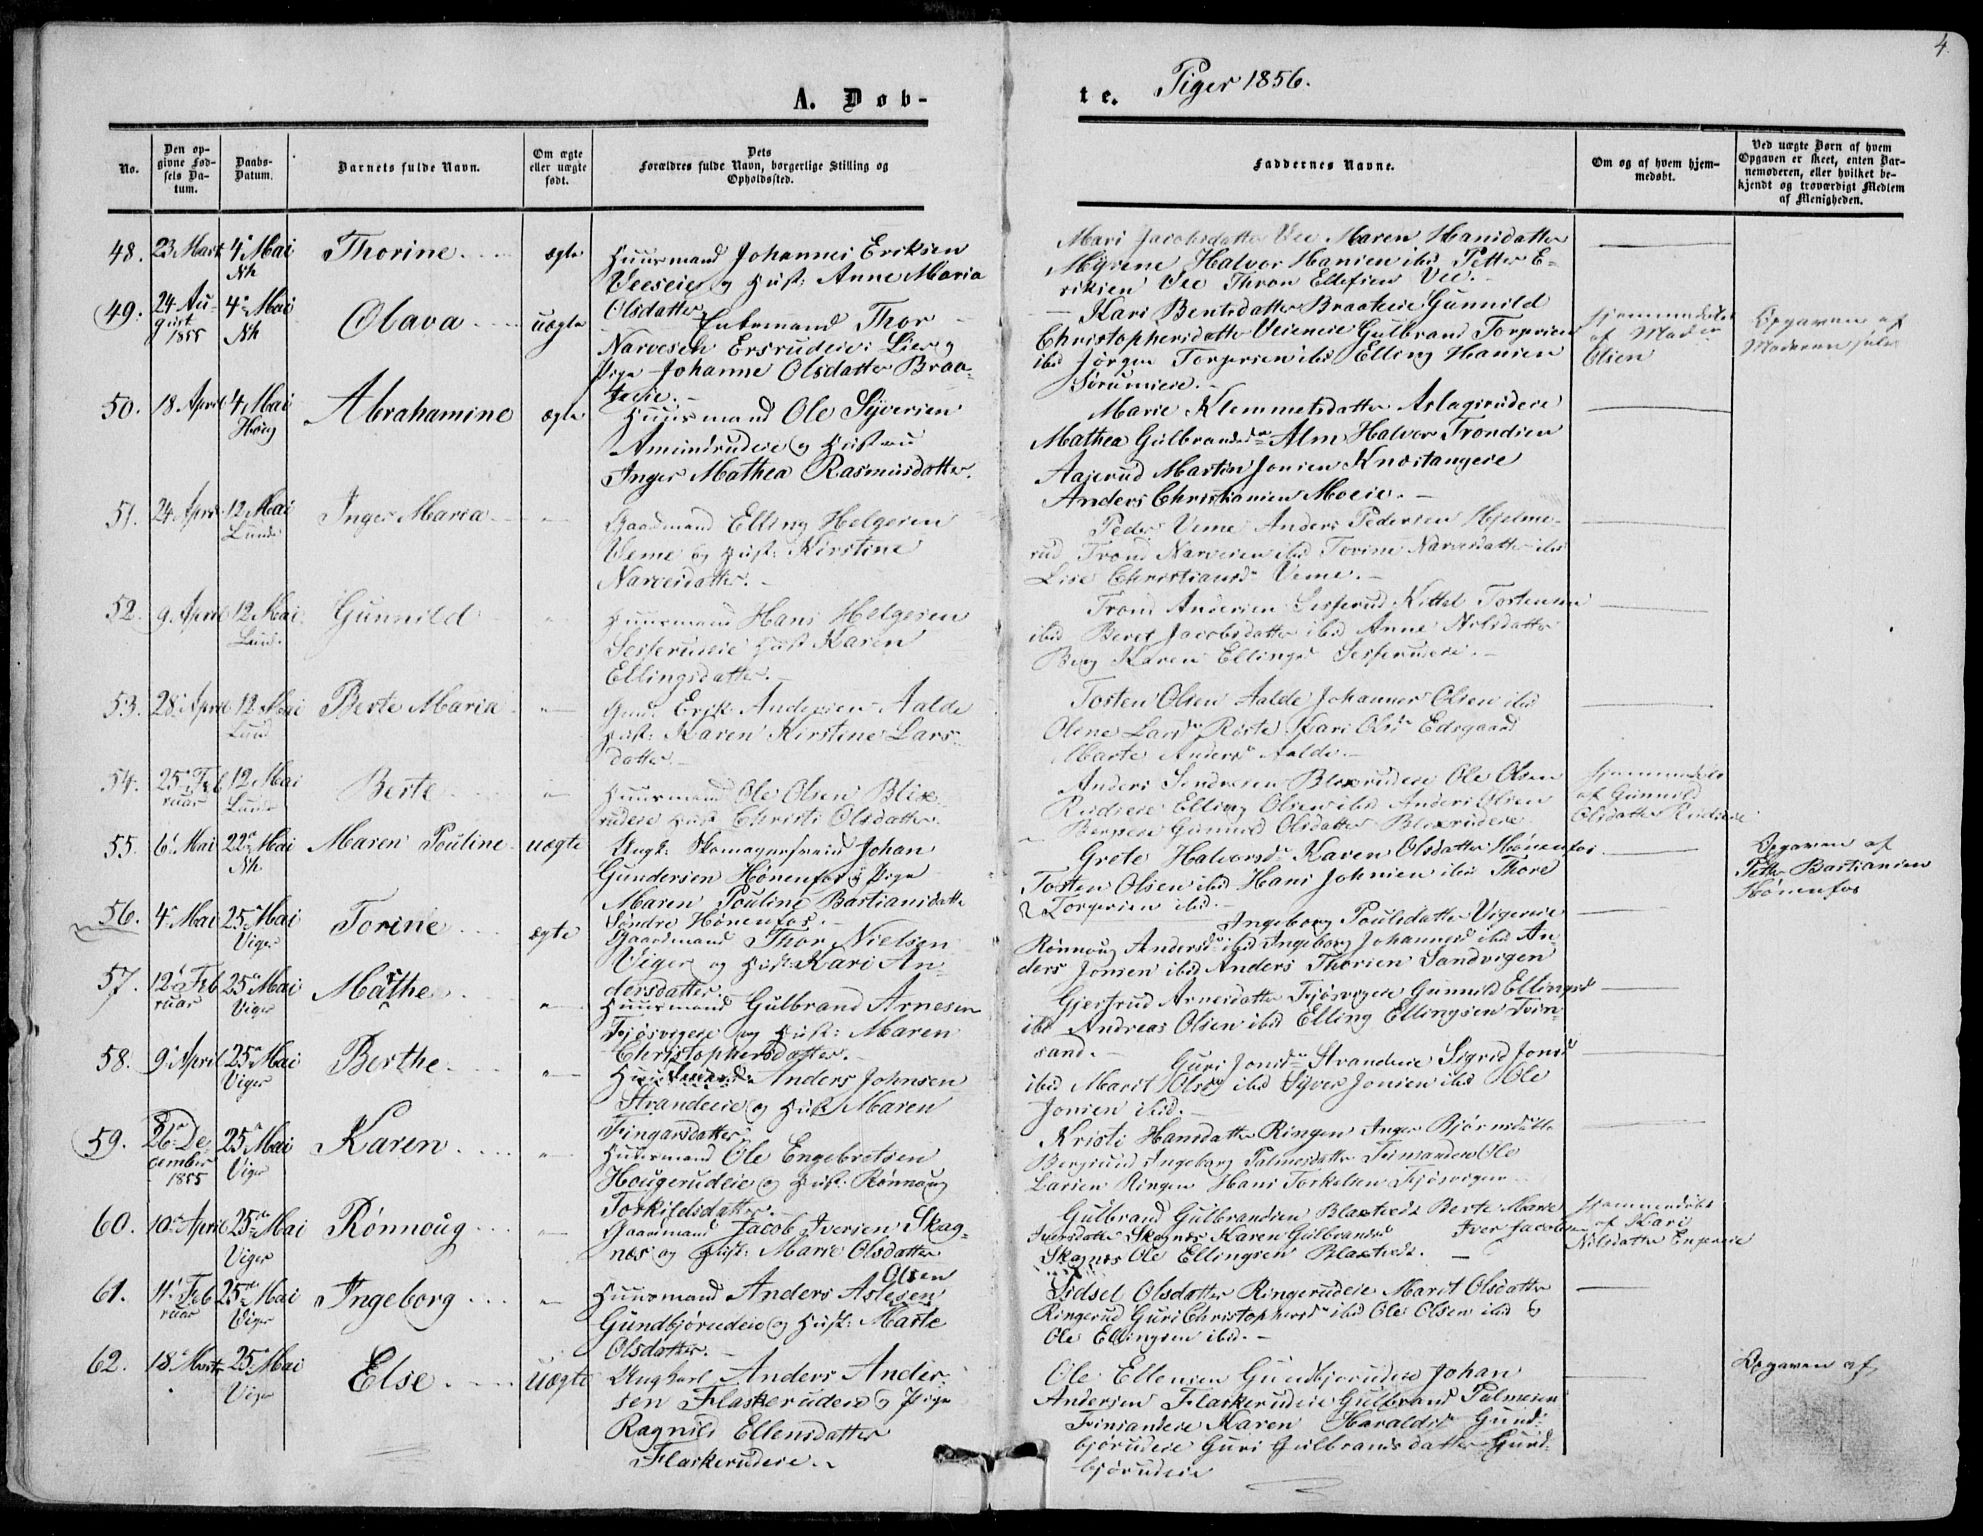 4.
A. Døb-
te. Piger 1856.
No.
Den op-
givne Fød-
sels Da-
tum.
Daabs-
Datum.
Barnets fulde Navn.
Om ægte
eller uægte
født.
Dets
Forældres fulde Navn, borgerlige Stilling og
Opholdssted.
Faddernes Navne.
Om og af hvem hjem-
medøbt.
Ved uægte Børn af hvem
Opgaven er skeet, enten Bar-
nemoderen, eller hvilket be-
kjendt og troværdigt Medlem
af Menigheden.
48. 23 Marts 4 Mai Nh Thorine ægte
Huusmand Johannes Eriksen
Veeseie og Hust: Anne Maria
Olsdatter
Mari Jacobsdatter Vee Maren Hansdatter
Myrene Halvor Hansen ibid Petter E-
riksen Vee Thron Ellefsen Vee.
49. 24 Au-
gust
1855
4 Mai
Nh
Olava uægte
Enkemand Thor
Narvesen Ersrudeie i Lier og
Pige Johanne Olsdatter Braa-
Kari Bentsdatter Braateie Gunnild
Christophersdatter Veieneie Gulbrand Torgersen
ibid Jørgen Torgersen ibid Elling Hansen
Sørumeie.
af
Olsen
Opgaven af
Moderen selv
50. 18 April 4 Mai Houg Abrahamine ægte
Huusmand Ole Syversen
Amundrudeie og Hustru
Inger Mathea Rasmusdatter.
Marie Klemmetsdatter Aslagsrudeie
Mathea Gulbrandsdr Alm Halvor Trondsen
Aajerud Martin Jonsen Knestangeie
Anders Christiansen Moeie.
51. 24 April 12 Mai Lunde Inger Maria
Gaardmand Elling Helgesen
Veme og Hust: Kirstine
Narvesdatter.
Peder Veme Anders Pedersen Hjelme-
rud Trond Narvesen ibid Torine Narvesdatter ibid
Lise Christiansd Veme.
52. 9 April 12 Mai Lund. Gunnild
Huusmand Hans Helgesen
Sesserudeie Hust Karen
Ellingsdatter.
Trond Andersen Sesserud Kittel Tostensen
ibid Beret Jacobsdatter ibid Anne Nilsdatter
Berg Karen Ellingsd Sesserudeie.
53. 28 April 12 Mai Lund Berte Maria
Gmd. Erik Andersen Aalde
Hust: Karen Kirstine Lars-
datter.
Tosten Olsen Aalde Johannes Olsen ibid
Olene Larsd Riste Kari Olsd Edsgaard
Marte Andersd Aalde.
54. 25 Feb
ruar
12 Mai
Lunde
Berte
Huusmand Ole Olsen Blix
rudeie Hust Christi Olsdatter.
Anders Olsen Blixrudeie Ole Olsen
Rudseie Elling Olsen ibid Anders Olsen
Bergeie Gunnild Olsdatter Blixrudeie
Hjemmedøbt
af Gunnild
Olsdatter Rudseie
55. 6 Mai 22 Mai Nh Maren Pouline uægte
Ungk: Skomagersvend Johan
Gundersen Hønenfos og Pige
Maren Pouline Bastiansdatter
Søndre Hønenfos.
Grete Halvorsd Karen Olsdatter Hønenfos
Tosten Olsen ibid Hans Johnsen ibid Thore
Torgersen ibid.
Opgaven af
Petter Bastiansen
Hønenfos
56. 4 Mai 25 Mai Viger Torine ægte
Gaardmand Thor Nielsen
Viger og Hust: Kari An-
dersdatter.
Ingeborg Poulsdatter Vigereie
Rønnoug Andersd ibid Ingeborg Johannesd ibid An-
ders Jonsen ibid Anders Thorsen Sandvigen
57. 12 Feb
ruar
25 Mai
Viger
Marthe
Huusmand Gulbrand Arnesen
Fjøsvigeie og Hust: Maren
Christophersdatter.
Gjertrud Arnesdatter Fjøsvigeie Gunnild Ellingsd
ibid Andreas Olsen ibid Elling Ellingsen Fin-
sand.
58. 9 April 25 Mai Viger Berthe
Huusmand Anders Johnsen
Strandeie og Hust Maren
Fingarsdatter
Guri Jonsd Strandeie Sigrid Jonsd
ibid Marit Olsd ibid Syver Jonsen ibid Ole
Jonsen ibid.
59. 26 De
cember
1855
25 Mai
Viger
Karen
Huusmand Ole Engebretsen
Hougerudeie og Hust: Rønnoug
Torkildsdatter.
Kristi Hansdatter Ringen Inger Bjørnsdatter
Bergsund Ingeborg Palmesdatter Finsanden Ole
Larsen Ringen Hans Torkelsen Fjøsvigen
60. 10 April 25 Mai Viger Rønnoug
Gaardmand Jacob Iversen Skag-
næs og Hust: Marie Olsdatter
Gulbrand Gulbrandsen Blakstveit Berte Marie
Iversdatter Skagnæs Karen Gulbrandsd Iver Jacobsen
Skagnæs Ole Ellingsen
Hjemmedøbt
af Kari
Nilsdatter
61. 11 Feb
ruar
25 Mai
Viger
Ingeborg
Olsen
Huusmand Anders Aslesen
Gundbjørudeie og Hust: Marte
Olsdatter.
Sidsel Olsdatter Ringerudeie Marit Olsdatter
Ringerud Guri Christophersd ibid Ole Olsen ibid og
Ole Ellingsen ibid.
62. 18 Marts 25 Mai Viger Else uægte
Ungkarl Anders Ander-
sen Flaskerudeie og Pige
Ragnild Ellensdatter
Flaskerudeie.
Ole Ellensen Gundbjørudeie Johan
Andersen Flaskerudeie Gulbrand Palmesen
Finsandeie Karen Haraldsd Gund-
bjørudeie Guri Gulbrandsdatter Gund-
bjørudeie
Opgaven af